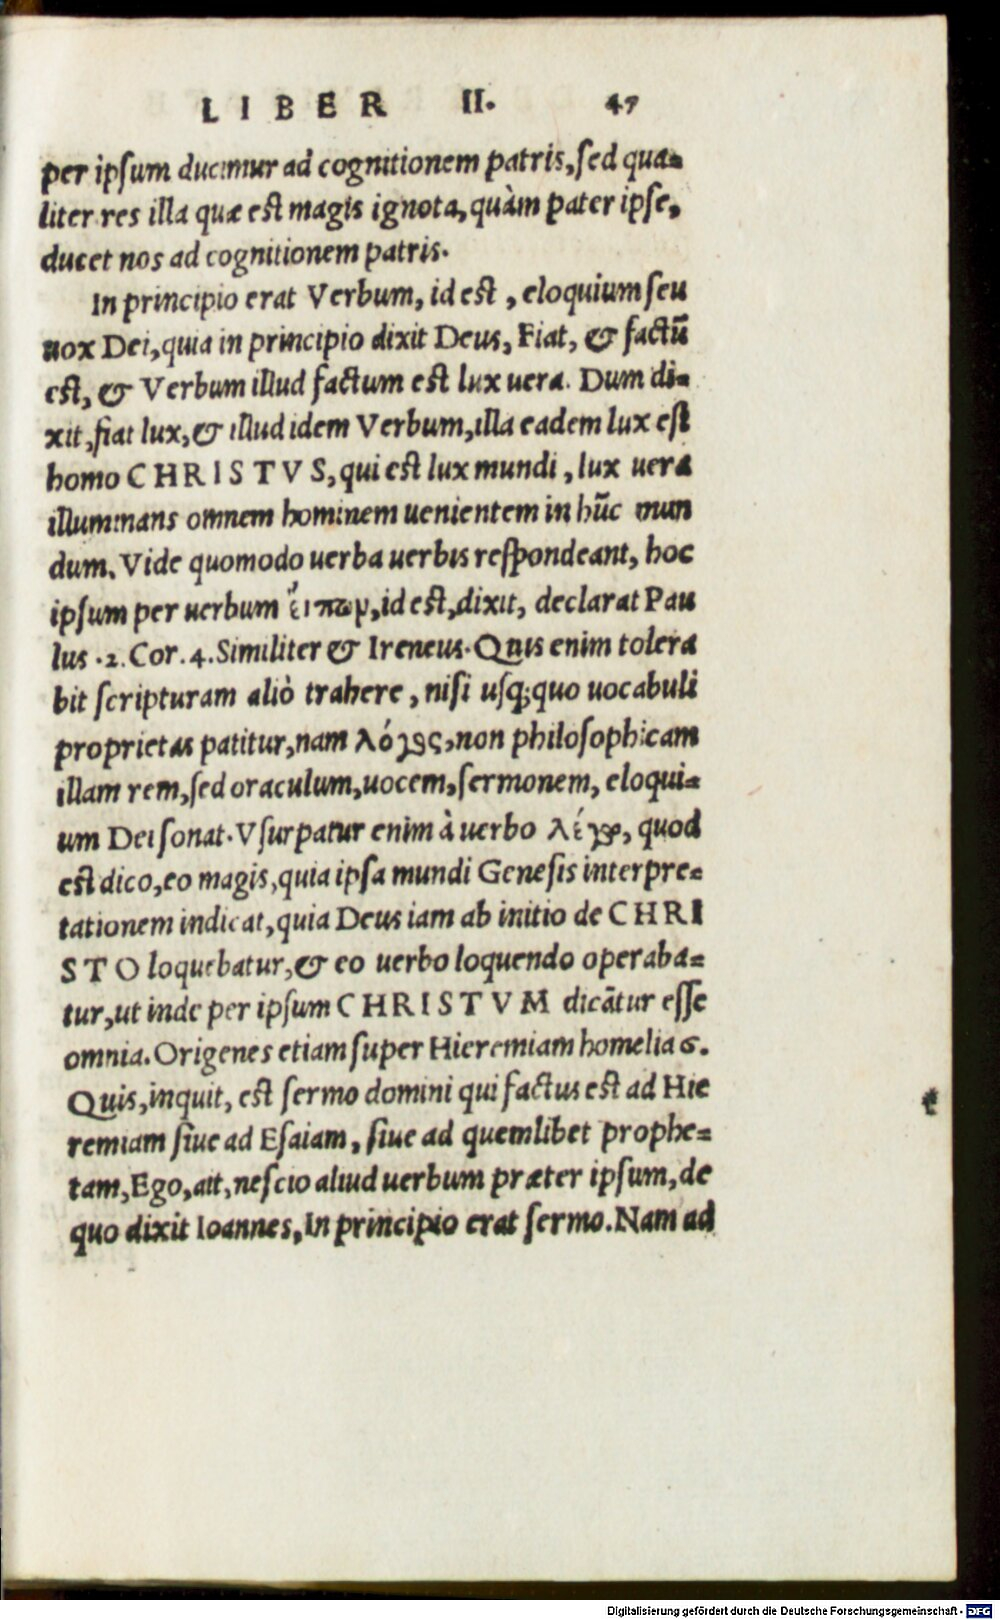 LIBER II. 47
per ipsum ducimur ad cognitionem patris, sed qua-
liter res illa quæ est magis ignota, quàm pater ipse,
ducet nos ad cognitionem patris.
In principio erat Verbum, id est, eloquium seu
uox Dei, quia in principio dixit Deus, Fiat, & factũ
est, & Verbum illud factum est lux uera. Dum di-
xit, fiat lux, & illud idem Verbum, illa eadem lux est
homo CHRISTVS, qui est lux mundi, lux uera
illuminans omnem hominem uenientem in hũc mun
dum. Vide quomodo uerba uerbis respondeant, hoc
ipsum per uerbum εἰπὼν, id est, dixit, declarat Pau
lus .2. Cor. 4. Similiter & Ireneus. Quis enim tolera
bit scripturam aliò trahere, nisi usq; quo uocabuli
proprietas patitur, nam λόγος, non philosophicam
illam rem, sed oraculum, uocem, sermonem, eloqui-
um Dei sonat. Vsurpatur enim à uerbo λέγω, quod
est dico, eo magis, quia ipsa mundi Genesis interpre-
tationem indicat, quia Deus iam ab initio de CHRI
STO loquebatur, & eo uerbo loquendo operaba-
tur, ut inde per ipsum CHRISTVM dicãtur esse
omnia. Origenes etiam super Hieremiam homelia 6.
Quis, inquit, est sermo domini qui factus est ad Hie
remiam siue ad Esaiam, siue ad quemlibet prophe-
tam, Ego, ait, nescio aliud uerbum præter ipsum, de
quo dixit Ioannes, In principio erat sermo. Nam ad
Digitalisierung gefördert durch die Deutsche Forschungsgemeinschaft - DFG